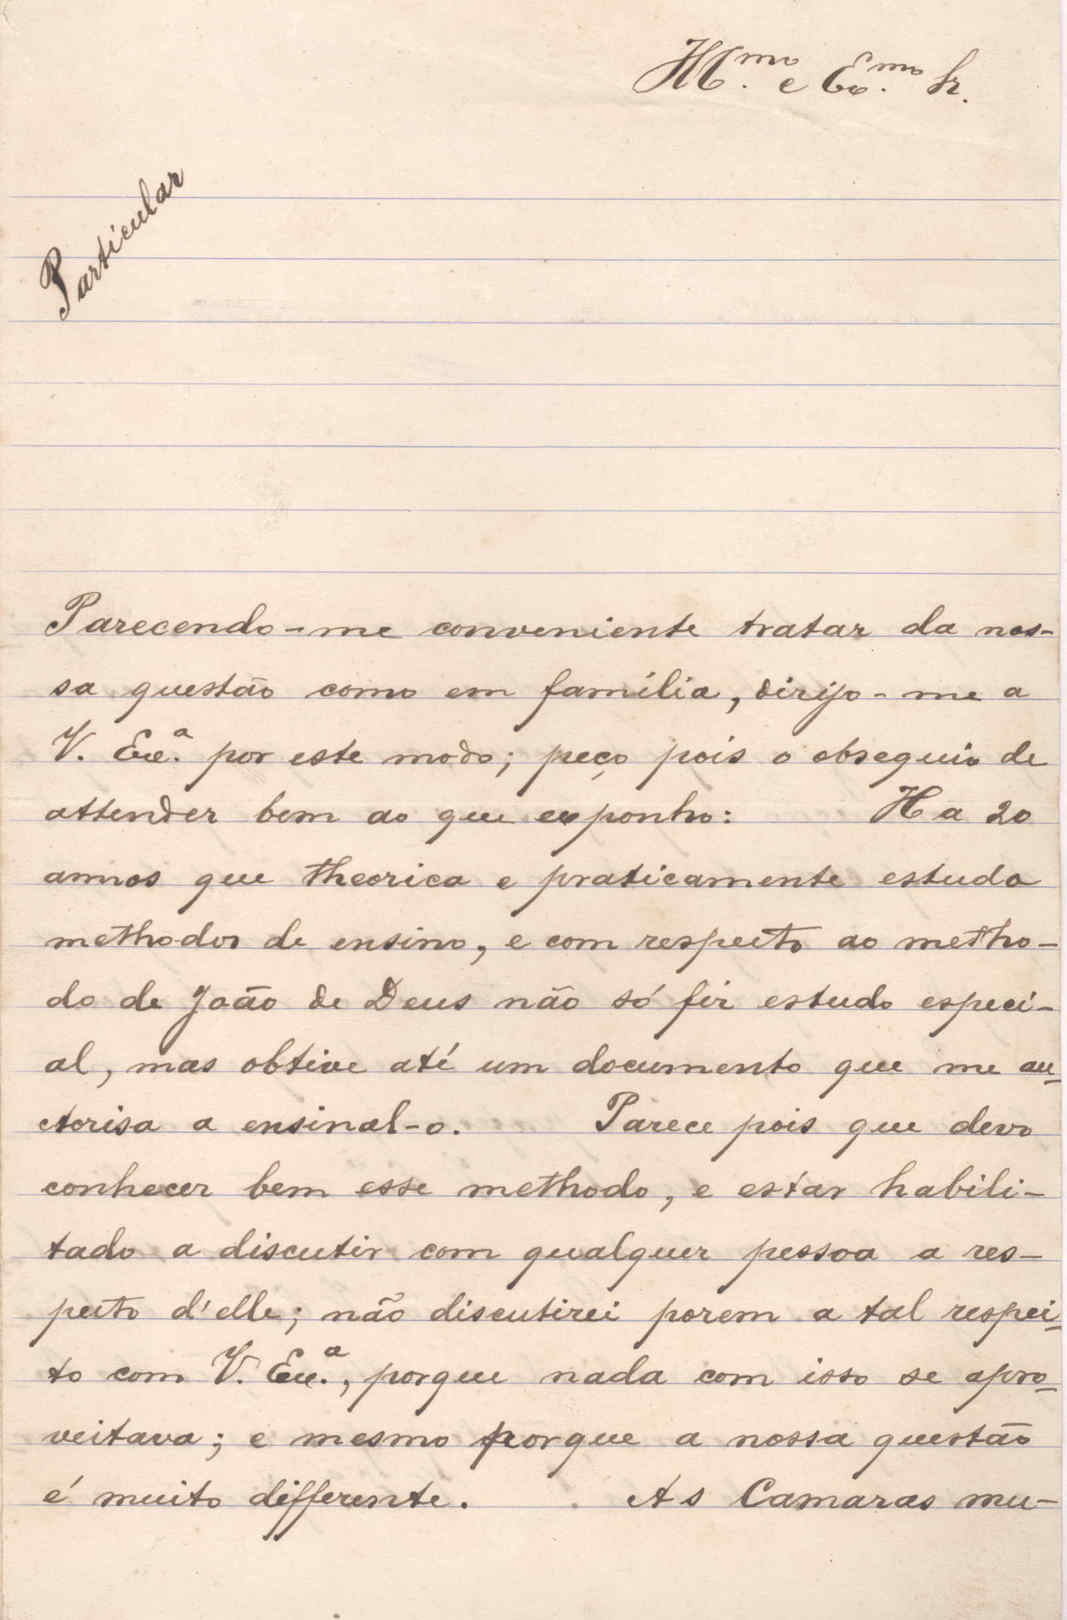 Ill.mo e Ex.mo Sr.
Particular
Parecendo-me conveniente tratar da nos-
sa questão como em familia, dirijo-me a
V. Ex.a por este modo; peço pois o obsequio de
attender bem ao que exponho: Ha 20
annos que theorica e praticamente estudo
methodos de ensino, e com respeito ao metho-
do de João de Deus não só fiz estudo especi-
al, mas obtive até um documento que me au-
ctorisa a ensinal-o. Parece pois que devo
conhecer bem esse methodo, e estar habili-
tado a discutir com qualquer pessoa a res-
peito d'elle; não discutirei porem a tal respei-
to com V. Ex.a, porque nada com isso se apro-
veitava; e mesmo porque a nossa questão
é muito differente. As Camaras mu-